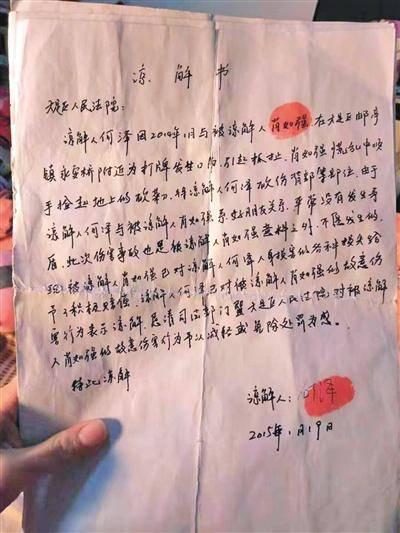 谅解书
大足区人民法院:
谅解人何泽因2014年1月与被谅解人肖如强在大足区邮亭
镇永宝桥附近为打牌发生口角,引起
手捡起地上的砍菜刀,将谅解人何泽砍伤背部等部位,由于
谅解人何泽与被谅解人肖如强系好朋友关系,平常没有发生矛
盾,此次伤害事故也是被谅解人肖如强意料之外,不该发生的。
现被谅解人肖如强已对谅解人何泽人身损害的各种损失给
予了积极赔偿,谅解人何泽已对被谅解人肖如强的故意伤
害行为表示谅解。恳请司法部门暨大足区人民法院对被谅解
人肖如强的故意伤害行为予以减轻或免除处罚为感。
特此谅解
谅解人:何泽
2015年1月19日